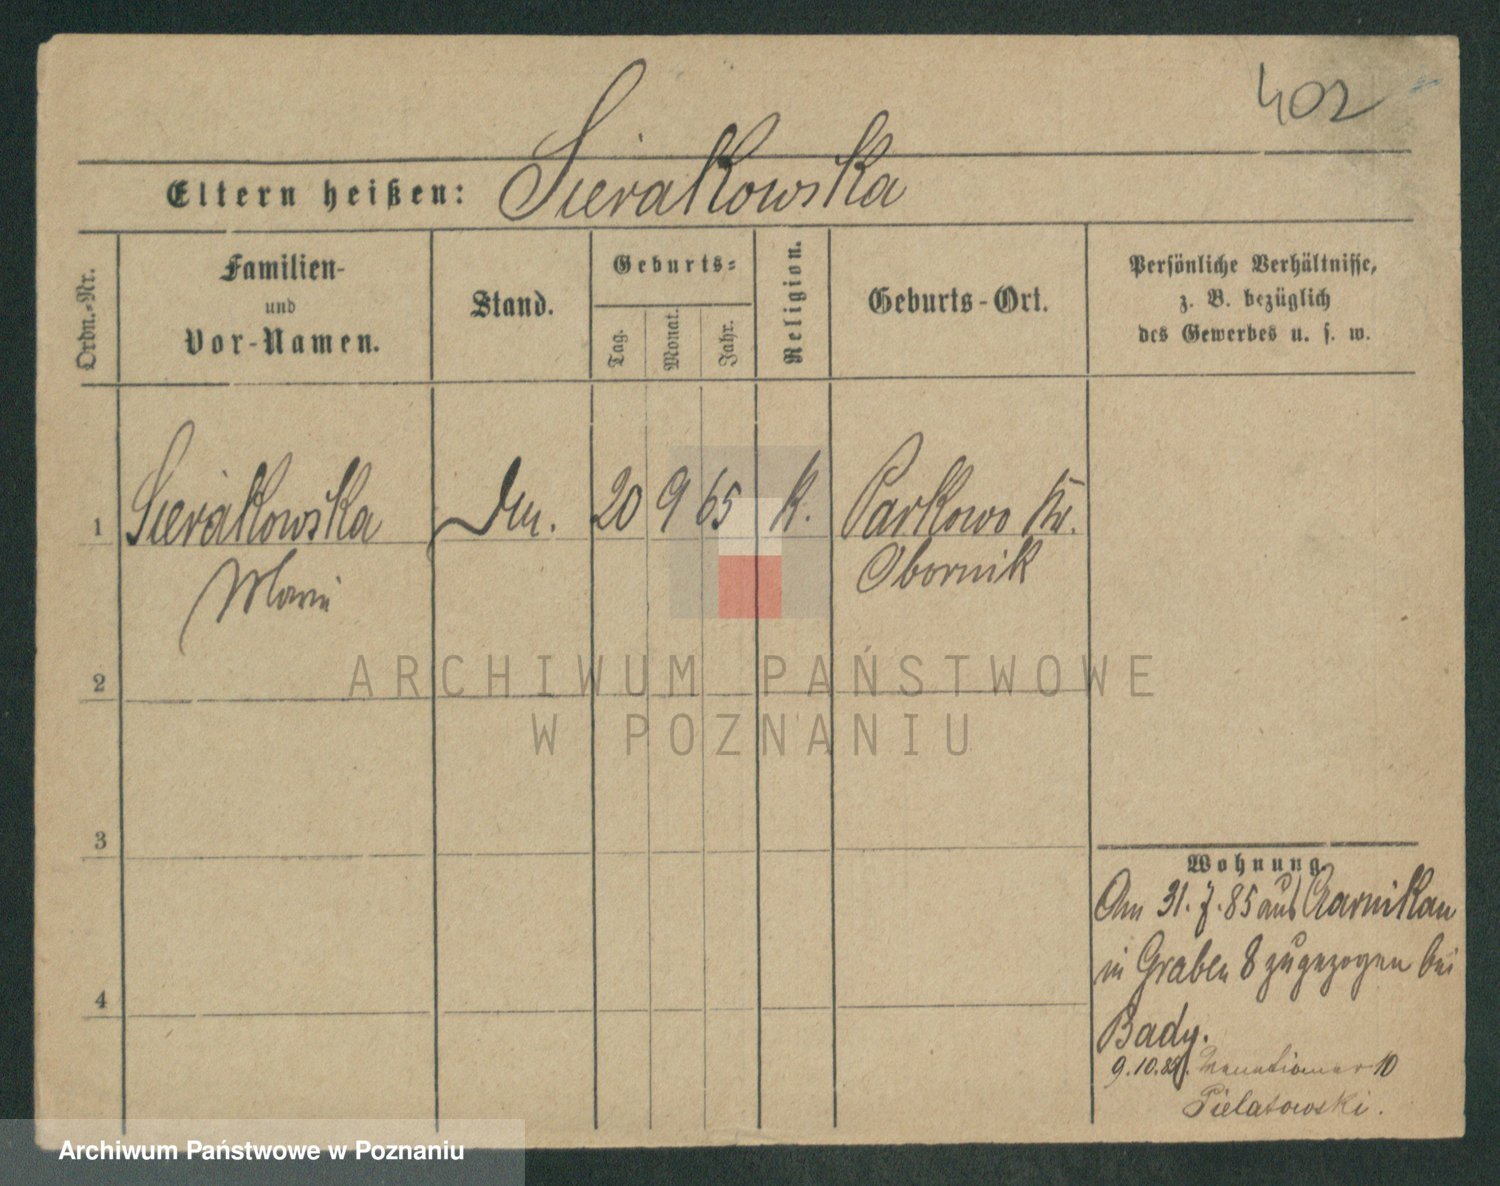 402
Sierakowska
Eltern heißen:
Ordn.-Nr.
Familien-
und
Vor-Namen.
Stand.
Geburts-
Tag.
Monat.
Jahr.
Religion.
Geburts-Ort.
Persönliche Verhältnisse,
z. B. bezüglich
des Gewerbes u. s. w.
1 Sierakowska 20 9 65 k. Parkowo Kr.
Marie Obornik
2
3
4
Wohnung.
Am 31. 7. 85 aus Czarnikau
in Graben 8 zugezogen bei
Bady.
9.10.85. 10
Pielatowski.
ARCHIWUM PAŃSTWOWE
W POZNANIU
Archiwum Państwowe w Poznaniu